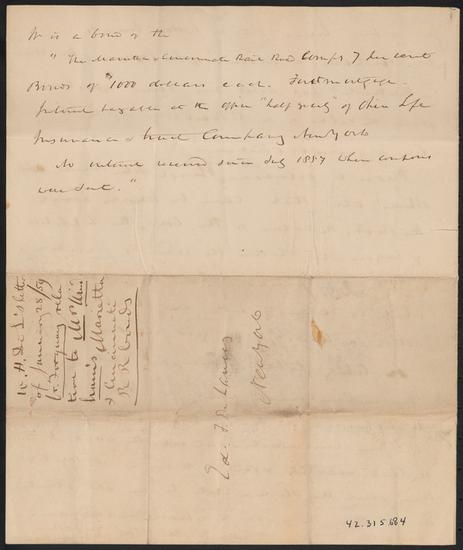 It is a bond of the
"The Marietta & Cincinnati Rail Road Compy 7 per cent
Bonds of $1000 dollars each. First mortgage.
Interest payable at the office "half yearly of Ohio Life
Insurance & Trust Company New York
No interest received since July 1857 when coupons
was due."
W. H. De L's letter
of January 28/59
& inquiry rela
tive to Mrs
Marietta
& Cincinnati
R R bonds
Ed. F. De Lancey
New York
42.315.684